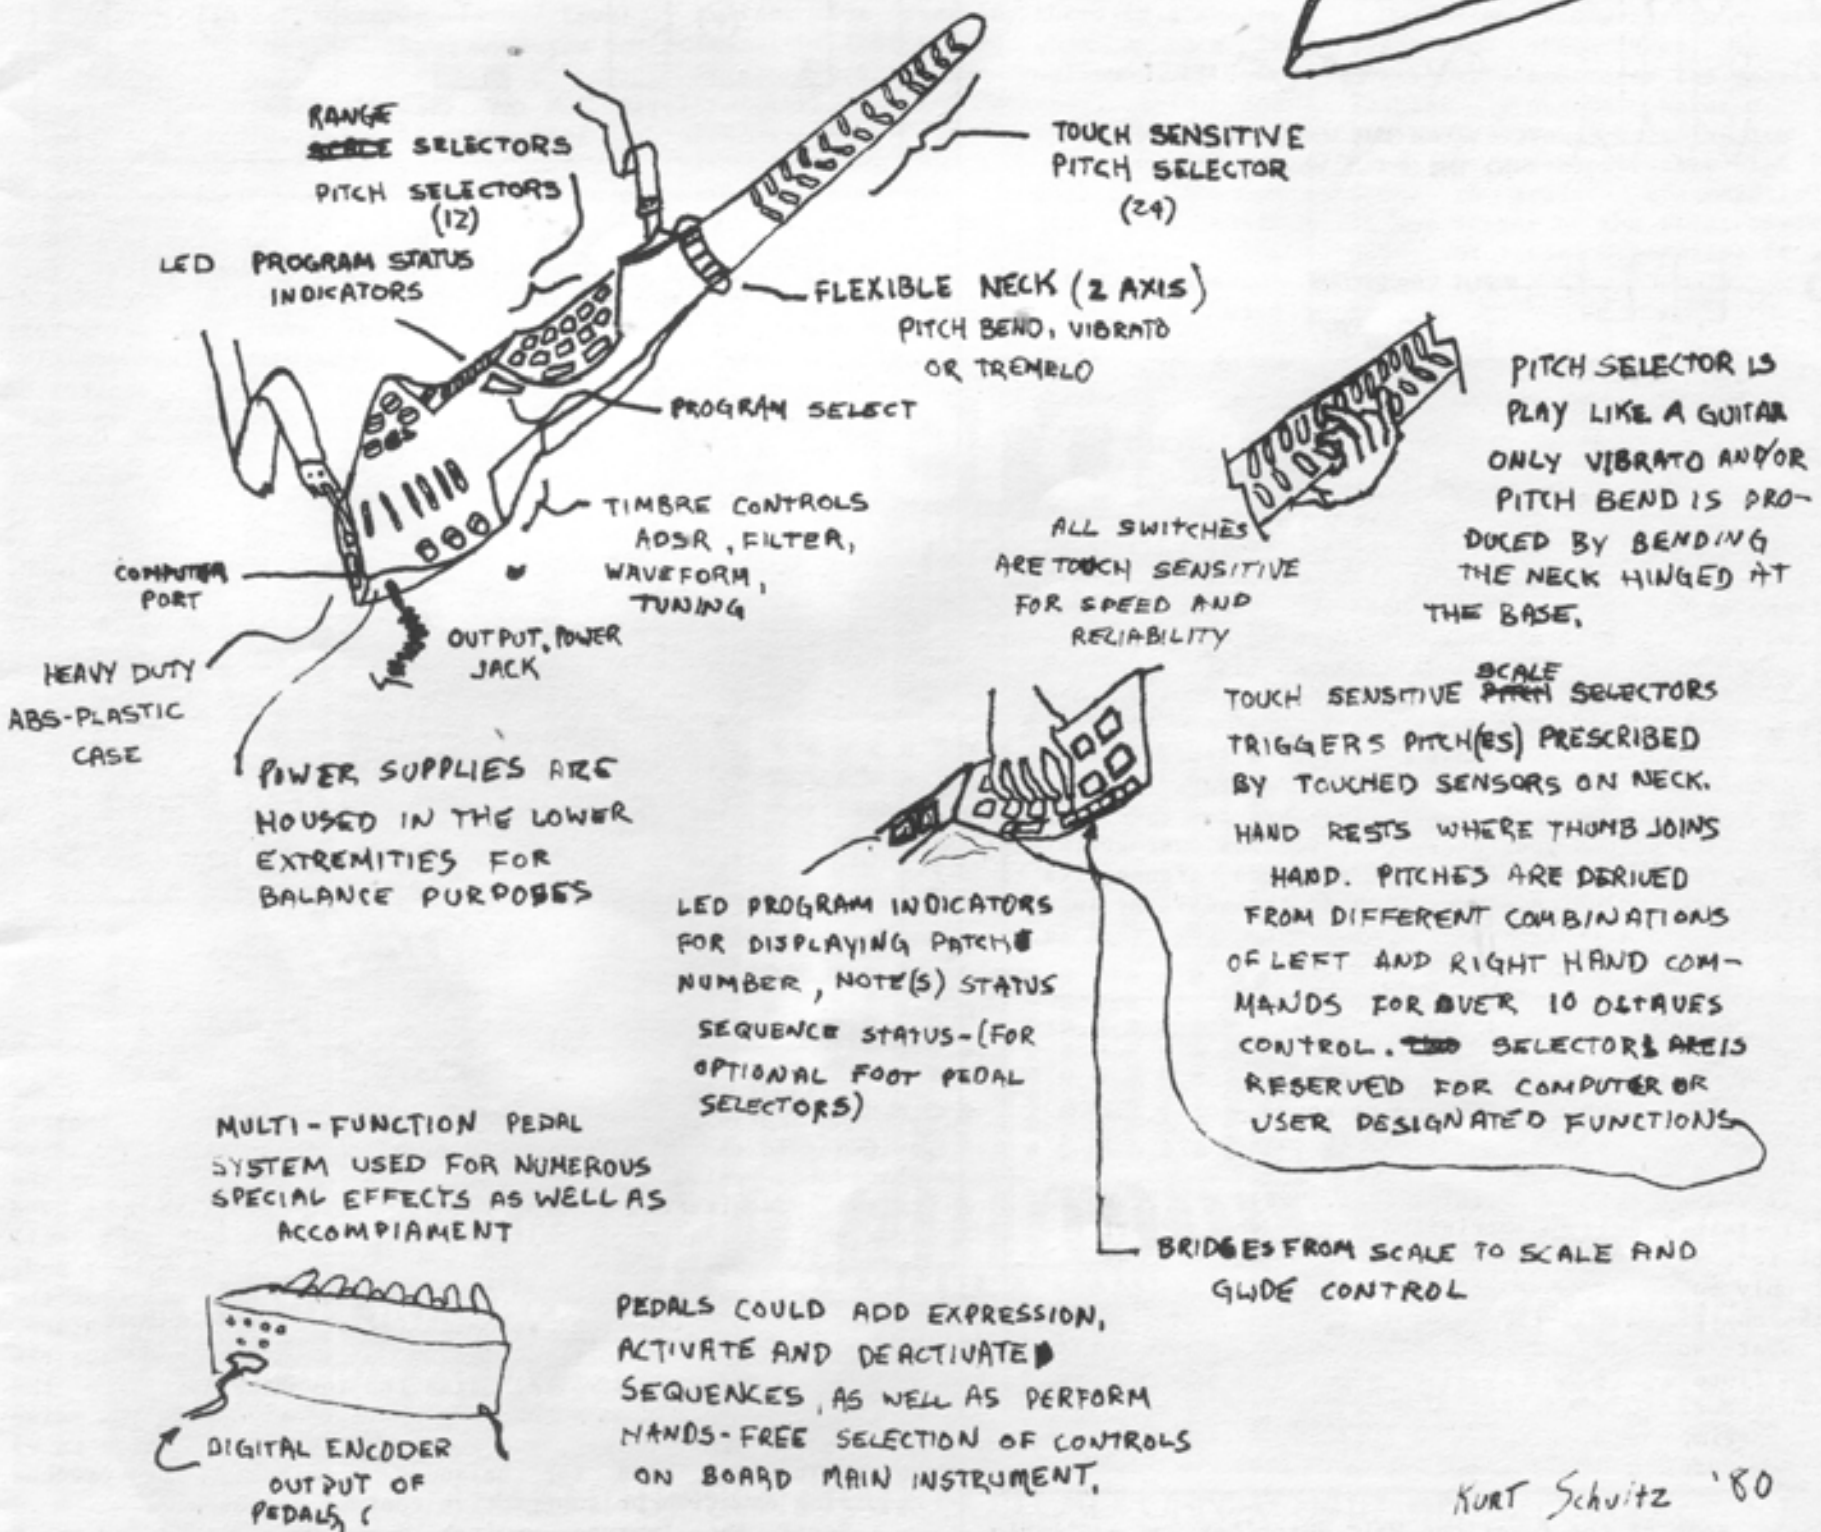 RANGE
SELECTORS
PITCH SELECTORS
(12)
LED PROGRAM STATUS
INDICATORS
TOUCH SENSITIVE
PITCH SELECTOR
(24)
FLEXIBLE NECK (2 AXIS)
PITCH BEND, VIBRATO
OR TREMELO
PROGRAM SELECT
TIMBRE CONTROLS
ADSR, FILTER,
WAVEFORM,
TUNING
COMPUTER
PORT
OUTPUT, POWER
JACK
HEAVY DUTY
ABS-PLASTIC
CASE
POWER SUPPLIES ARE
HOUSED IN THE LOWER
EXTREMITIES FOR
BALANCE PURPOSES
PITCH SELECTOR IS
PLAY LIKE A GUITAR
ONLY VIBRATO AND/OR
PITCH BEND IS PRO-
DUCED BY BENDING
THE NECK HINGED AT
THE BASE.
ALL SWITCHES
ARE TOUCH SENSITIVE
FOR SPEED AND
RELIABILITY
TOUCH SENSITIVE SCALE SELECTORS
TRIGGERS PITCH(ES) PRESCRIBED
BY TOUCHED SENSORS ON NECK.
HAND RESTS WHERE THUMB JOINS
HAND. PITCHES ARE DERIVED
FROM DIFFERENT COMBINATIONS
OF LEFT AND RIGHT HAND COM-
MANDS FOR OVER 10 OCTAVES
CONTROL. SELECTOR IS
RESERVED FOR COMPUTER OR
USER DESIGNATED FUNCTIONS
LED PROGRAM INDICATORS
FOR DISPLAYING PATCH
NUMBER, NOTE(S) STATUS
SEQUENCE STATUS-(FOR
OPTIONAL FOOT PEDAL
SELECTORS)
BRIDGES FROM SCALE TO SCALE AND
GLIDE CONTROL
MULTI-FUNCTION PEDAL
SYSTEM USED FOR NUMEROUS
SPECIAL EFFECTS AS WELL AS
ACCOMPIAMENT
DIGITAL ENCODER
OUTPUT OF
PEDALS, (
PEDALS COULD ADD EXPRESSION,
ACTIVATE AND DEACTIVATE
SEQUENCES, AS WELL AS PERFORM
HANDS-FREE SELECTION OF CONTROLS
ON BOARD MAIN INSTRUMENT.
KURT Schvitz '80